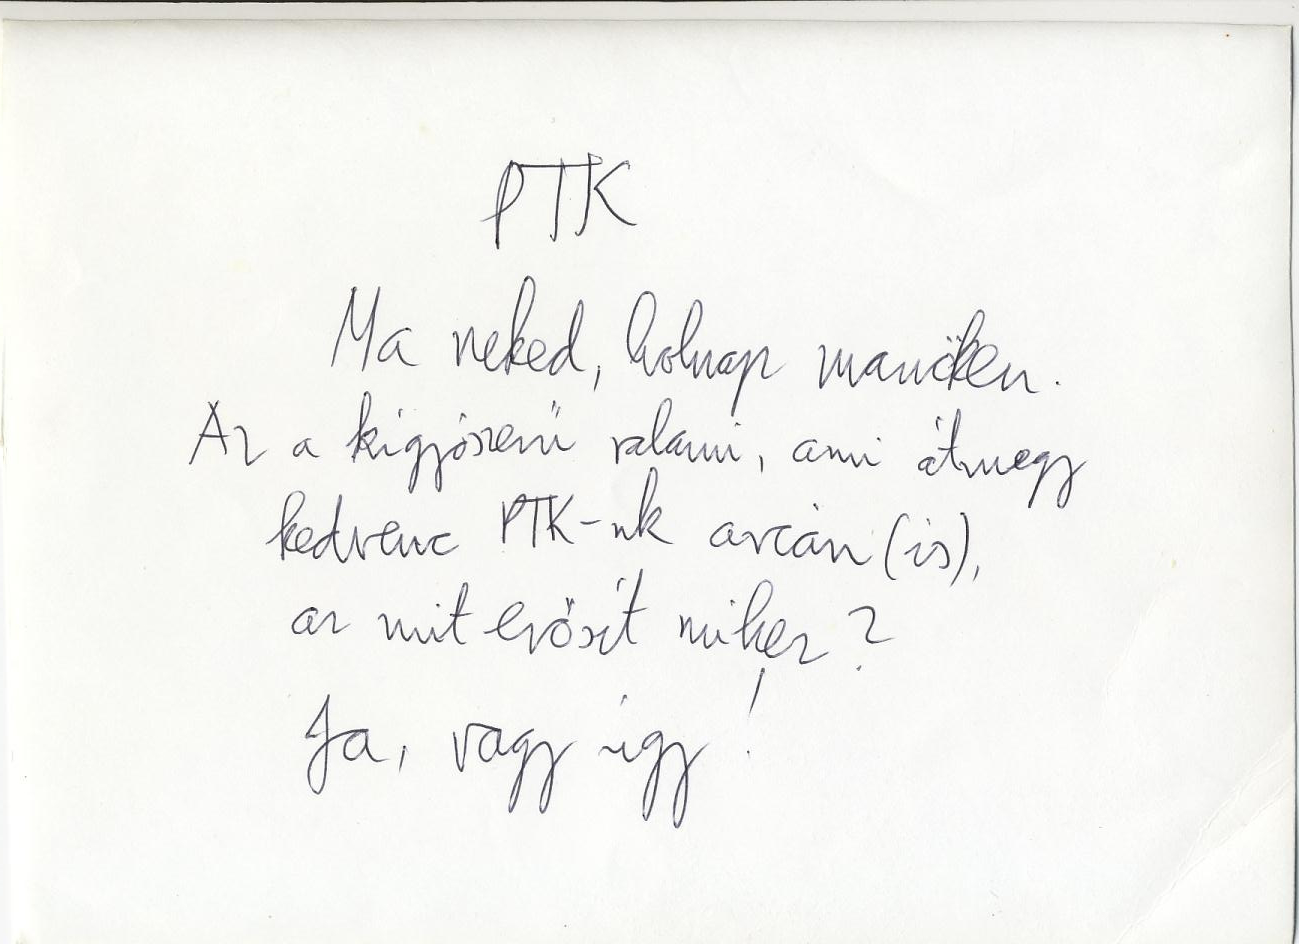 PTK
Ma neked, holnap manöken.
Az a kígyószerű valami, ami átmegy
kedvenc PTK-nk arcán (is),
az mit erősít mihez?
Ja, vagy úgy!